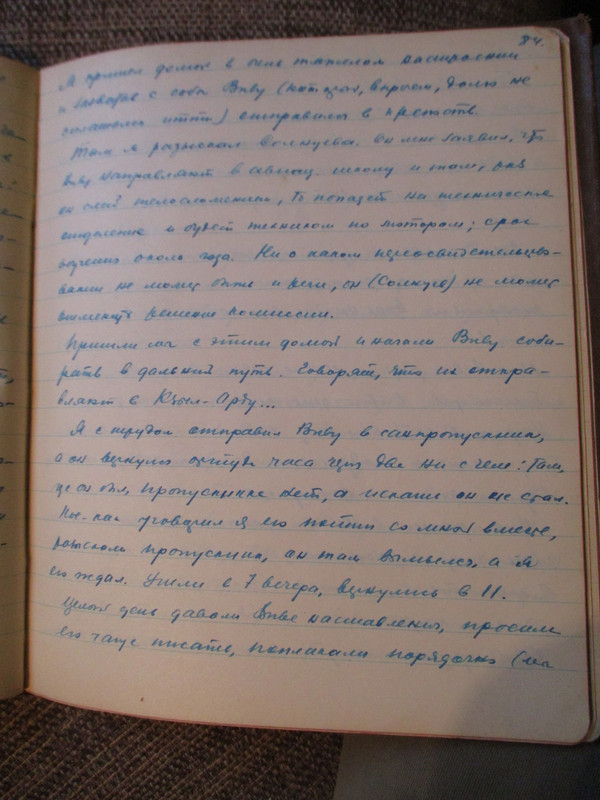 84.
Я пришел домой в очень тяжелом настроении
и захватив с собой Вову (который, впрочем, долго не
соглашался итти) отправились в крепость.
Там я разыскал Солнцева. Он мне заявил, что
Вову направляют в авиац. школу и там, раз
он слаб телосложением, то попадет на техническое
отделение и будет техником по моторам; срок
обучения около года. Ни о каком переосвидетельство-
вании не может быть и речи, он (Солнцев) не может
отменить решение комиссии.
Пришли мы с этим домой и начали Вову соби-
рать в дальний путь. Говорят, что их отпра-
вляют в Кзыл-Орду...
Я с трудом отправил Вову в санпропускник,
а он вернулся оттуда часа через два ни с чем: там,
где он был, пропускника нет, а искать он не стал.
Кое-как уговорил я его пойти со мной вместе,
разыскали пропускник, он там вымылся, а я
его ждал. Ушли в 7 вечера, вернулись в 11.
Целый день давали Вове наставления, просили
его чаще писать, поплакали порядочно (мы